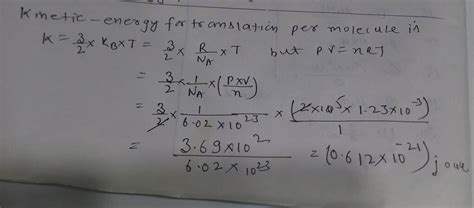 Kinetic-energy for translation per molecule is
K = 3/2 × KB × T = 3/2 × R/NA × T but PV = nRT
= 3/2 × 1/NA × (P×V/n)
= 3/2 × 1/6.02 × 10^23 × (2×10^5 × 1.23×10^-3)/1
= 3.69×10^2/6.02 × 10^23 = (0.612×10^-21) joule